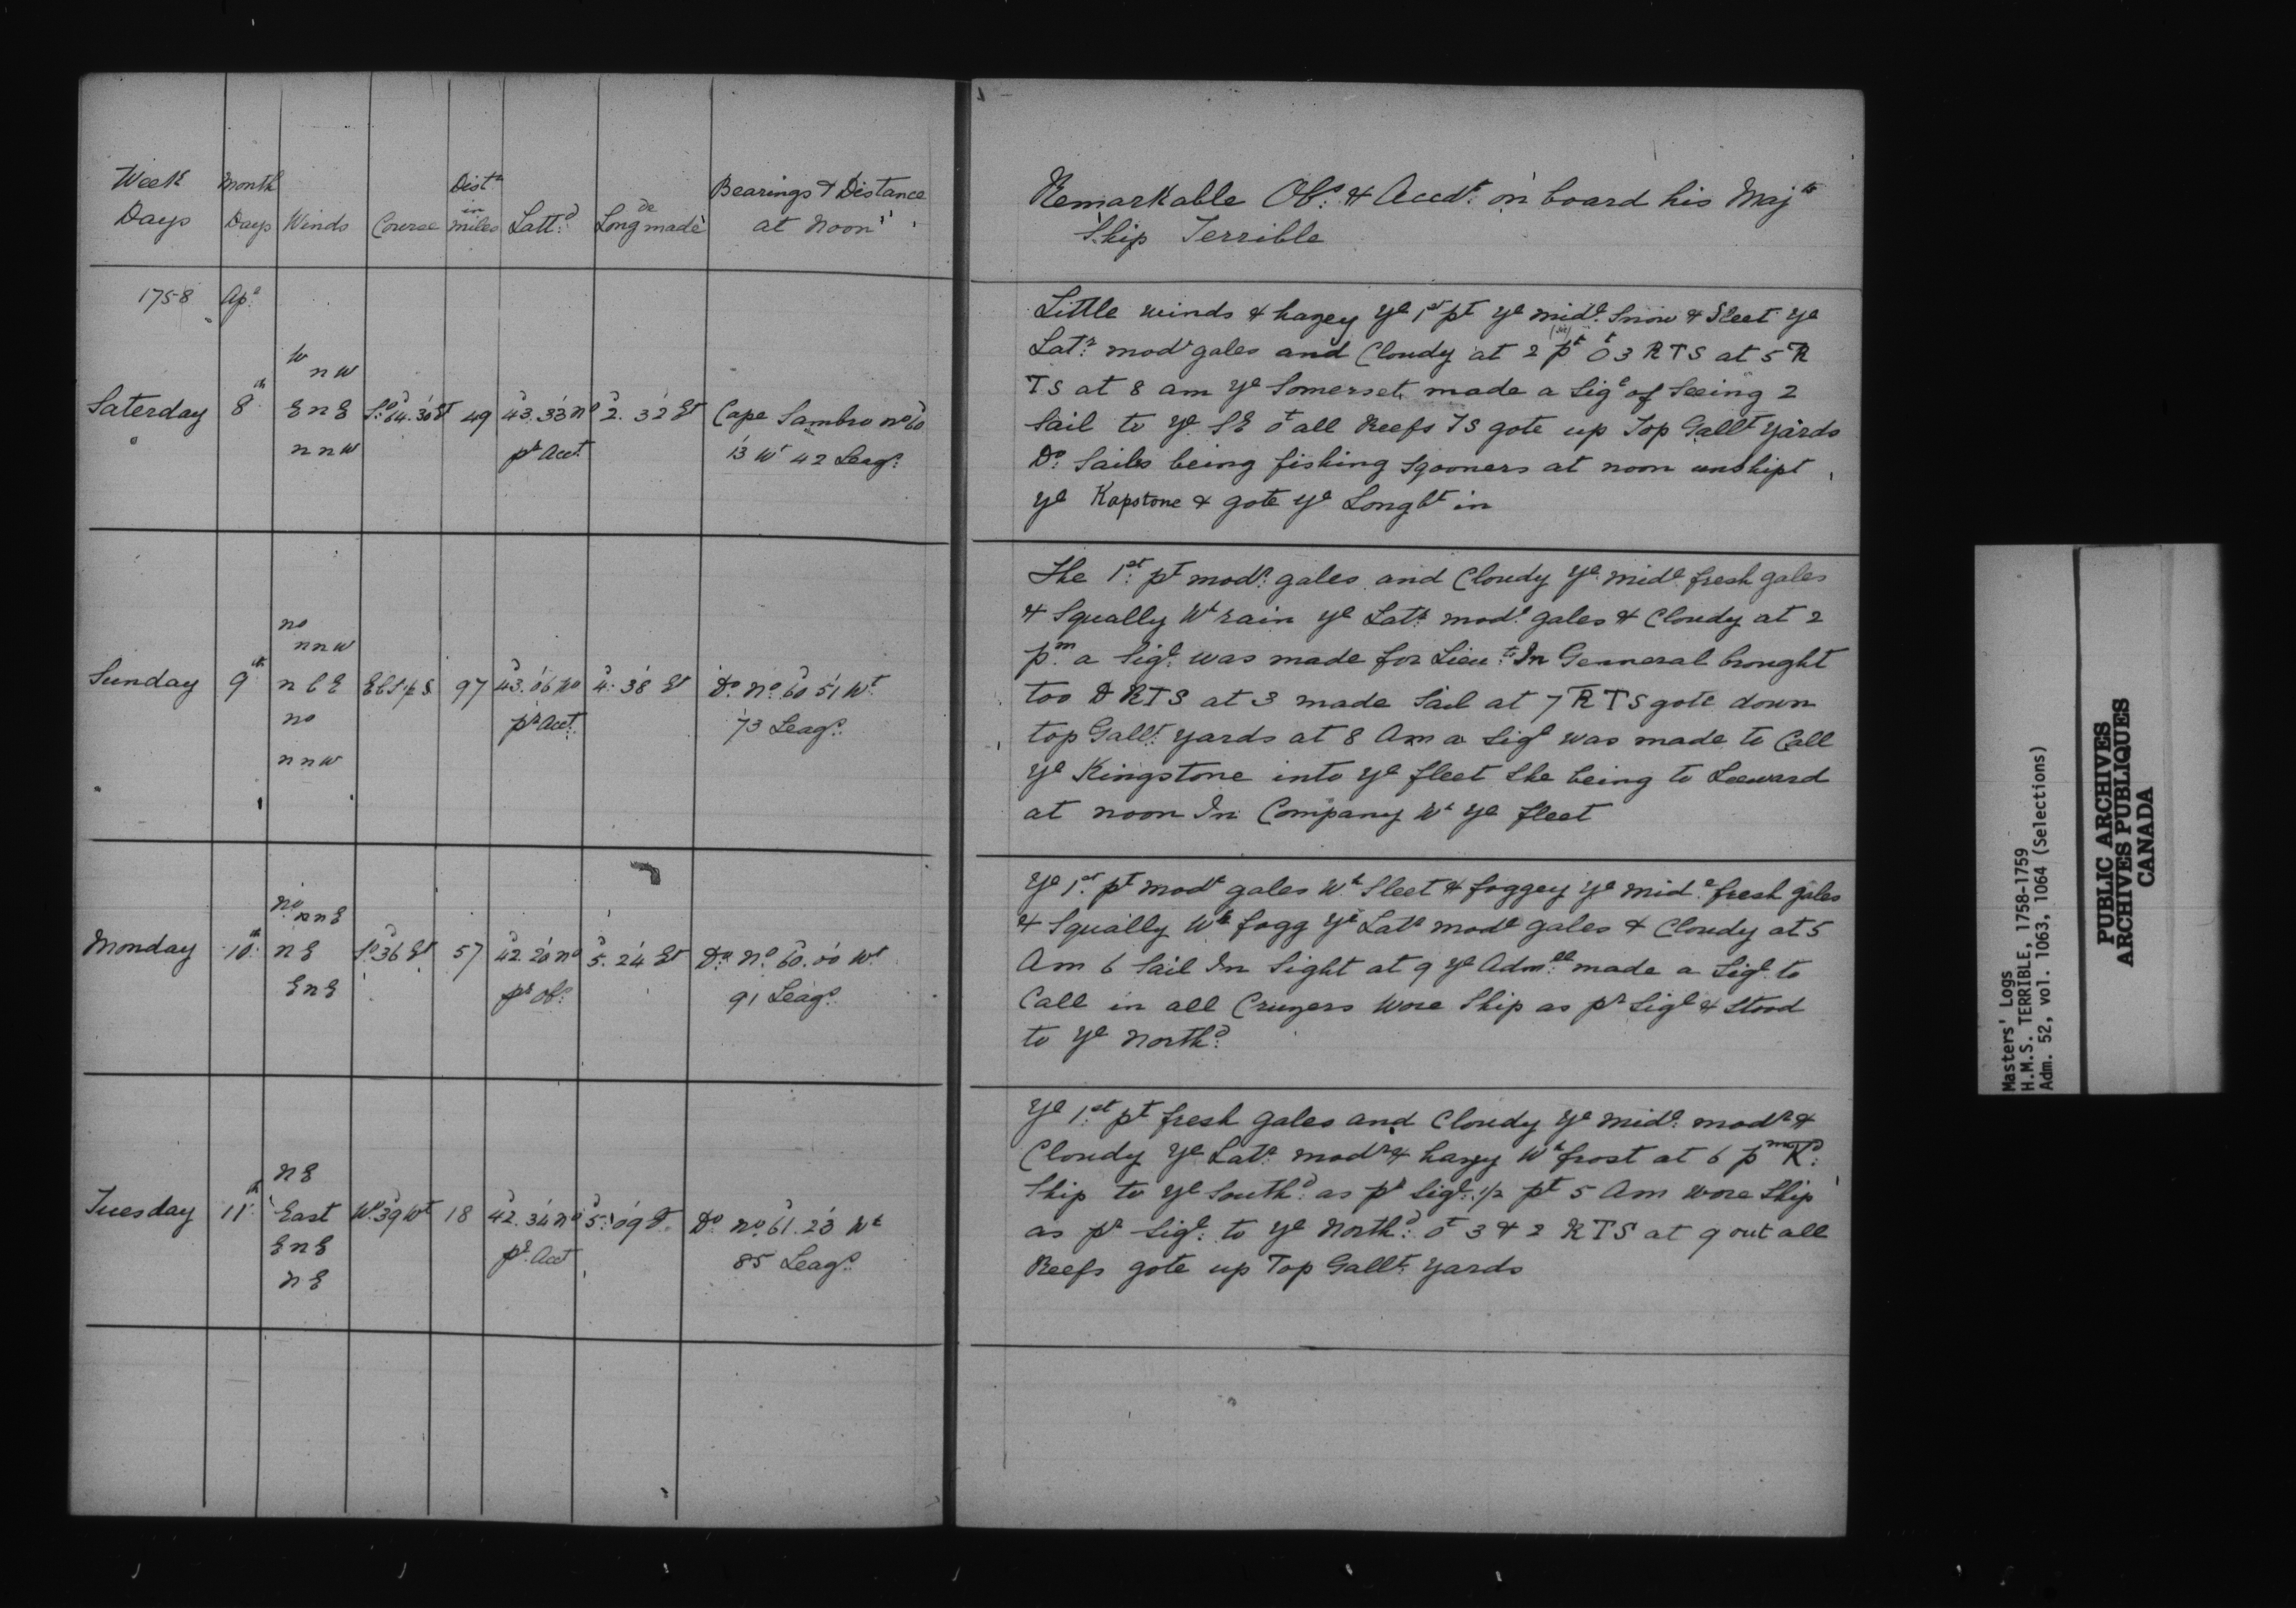 Week Days
Month Days
Winds
Course
Distce in miles
Lattd
Longde made
Bearings & Distance at Noon
1758 Apl
Saterday 8th
W
n W
E n E
n n W
So 64.30 Et 49 43.33 no 2.32 Et Cape Sambro no 60
pr Acct 13 Wt 42 Leags
Sunday 9th
no
n n w
n b E
no
n n w
EbS½S 97 43.06 No 4.38 Et Do No 60 51 Wt
pr Acct 73 Leags
Monday 10th
No
n n E
n E
E n E
So 36 Et 57 42.20 no 5.24 Et Do No 60.00 Wt
pr Obs 91 Leags
Tuesday 11th
n E
East
E n E
n E
No 39 Wt 18 42.34 no 5.09 Et Do no 61.20 Wt
pr Acct 85 Leags
Remarkable Obs: & Accdts on board his Majts
Ship Terrible
Little winds & hazey ye 1st pt ye midl Snow & Sleet ye
Latr modt gales and Cloudy at 2 pt (sic) ot 3 R T S at 5 R
T S at 8 am ye Somerset made a Sigl of Seeing 2
Sail to ye S E ot all Reefs T S gote up Top Gallt yards
Do Sails being fishing Sgooners at noon unshipt
ye Kapstone & gote ye Longbt in
The 1st pt modt gales and Cloudy ye midl fresh gales
& Squally Wh rain ye Latr modt gales & Cloudy at 2
pm a Sigl was made for Lieuts In Genneral brought
too D R T S at 3 made Sail at 7 R T S gote down
top Gallt yards at 8 Am a Sigl was made to Call
ye Kingstone into ye fleet She being to Leeward
at noon In Company Wh ye fleet
Ye 1st pt modt gales Wh Sleet & foggey ye midl fresh gales
& Squally Wh fogg ye Latr modt gales & Cloudy at 5
Am 6 Sail In Sight at 9 ye Admll made a Sigl to
Call in all Cruzers Wore Ship as pr Sigl & Stood
to ye Northd
Ye 1st pt fresh gales and Cloudy ye midl modr &
Cloudy ye Latr modr & hazy Wh frost at 6 pm Td
Ship to ye Southd as pr Sigl ½ pt 5 Am wore Ship
as pr Sigl to ye Northd ot 3 & 2 R T S at 9 out all
Reefs gote up Top Gallt yards
Masters' Logs
H.M.S. TERRIBLE, 1758-1759
Adm. 52, vol. 1063, 1064 (Selections)
PUBLIC ARCHIVES
ARCHIVES PUBLIQUES
CANADA